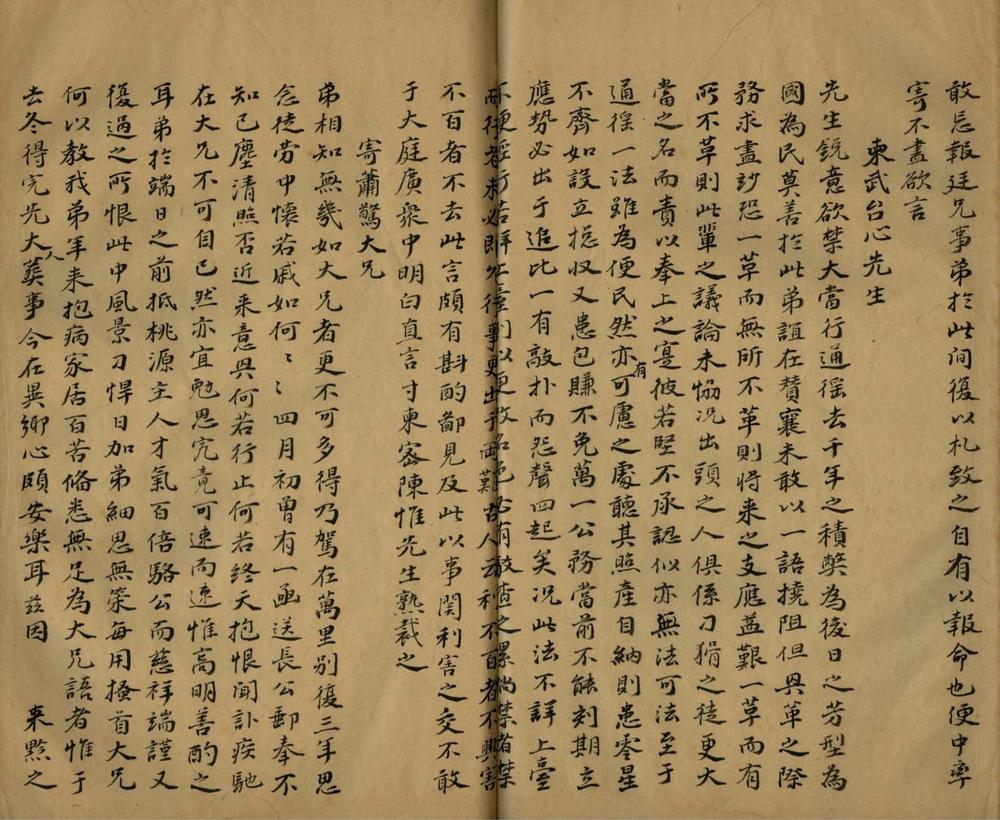 敢忘報廷兄事弟於此間復以札致之自有以報命也便中率
寄不盡欲言
柬武台心先生
先生銳意欲禁大當行通徭去千年之積獘為後日之芳型為
國為民莫善於此弟誼在賛襄未敢以一語撓阻但興革之際
務求盡玅恐一草而無所不革則將来之支應葢艱一草而有
所不草則此輩之議論未恊况出頭之人俱係刁猾之徒更大
當之名而責以奉上之寔彼若堅不承認似亦無法可法至于
通徭一法雖為便民然亦有可慮之處聽其照產自納則患零星
不齊如設立捴収又患包賺不免萬一公務當前不能刻期立
應势必出于追比一有敲扑而怨聲四起矣况此法不詳上臺
不便徑行若詳上臺則以更敗名色必有敲查之累倘禁者禁
而徃者未必即如後事更出于両難古人云利不百者不興害
不百者不去此言頗有斟酌鄙見及此以事関利害之交不敢
于大庭廣衆中明白直言寸柬宻陳惟先生熟裁之
寄蕭驚大兄
弟相知無幾如大兄者更不可多得乃駕在萬里别復三年思
念徒劳中懷若戚如何〻〻四月初曽有一函送長公郵奉不
知已塵清照否近来意興何若行止何若終天抱恨聞訃疾馳
在大兄不可自已然亦宜勉思完竟可速而速惟高明善酌之
耳弟於端日之前抵桃源主人才氣百倍駱公而慈祥端謹又
復過之所恨此中風景刁悍日加弟細思無策每用搔首大兄
何以教我弟年来抱病家居百苦俻悉無足為大兄語者惟于
去冬得完先大人䒹事今在異鄉心頗安樂耳兹因 来㸃之